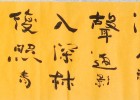 聲返影
入深林
復照青